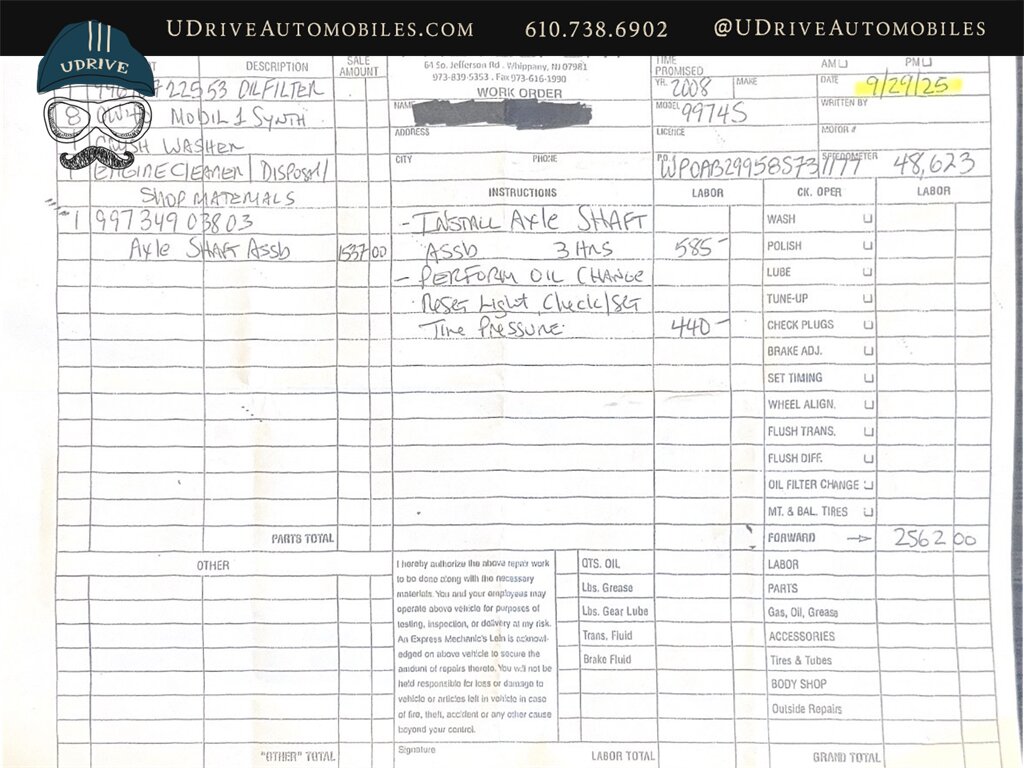 UDriveAutomobiles.com 610.738.6902 @UDriveAutomobiles
UDRIVE
DESCRIPTION
SALE
AMOUNT
722553 OIL FILTER
8 0W40 MOBIL 1 SYNTH
CRUSH WASHER
ENGINE CLEANER / DISPOSAL/
SHOP MATERIALS
1 997 349 038 03
Axle SHAFT ASSb 1537 00
PARTS TOTAL
OTHER
"OTHER" TOTAL
64 So. Jefferson Rd . Whippany, NJ 07981
973-839-5353 . Fax 973-616-1990
WORK ORDER
NAME
ADDRESS
CITY PHONE
TIME
PROMISED
AM PM
YR. 2008 MAKE
DATE 9/29/25
MODEL 9974S
WRITTEN BY
LICENCE
MOTOR #
P.O. WP0AB29958S731777
SPEEDOMETER 48,623
INSTRUCTIONS LABOR CK. OPER LABOR
- INSTALL AXLE SHAFT
ASSb 3 HRS 585-
- PERFORM OIL CHANGE
RESET Light, Check/SET
TIRE PRESSURE 440-
WASH
POLISH
LUBE
TUNE-UP
CHECK PLUGS
BRAKE ADJ.
SET TIMING
WHEEL ALIGN.
FLUSH TRANS.
FLUSH DIFF.
OIL FILTER CHANGE
MT. & BAL. TIRES
FORWARD 2562 00
I hereby authorize the above repair work
to be done along with the necessary
materials. You and your employees may
operate above vehicle for purposes of
testing, inspection, or delivery at my risk.
An Express Mechanic's Lein is acknowl-
edged on above vehicle to secure the
amount of repairs thereto. You will not be
held responsible for loss or damage to
vehicle or articles left in vehicle in case
of fire, theft, accident or any other cause
beyond your control.
Signature
QTS. OIL
Lbs. Grease
Lbs. Gear Lube
Trans. Fluid
Brake Fluid
LABOR TOTAL
LABOR
PARTS
Gas, Oil, Grease
ACCESSORIES
Tires & Tubes
BODY SHOP
Outside Repairs
GRAND TOTAL